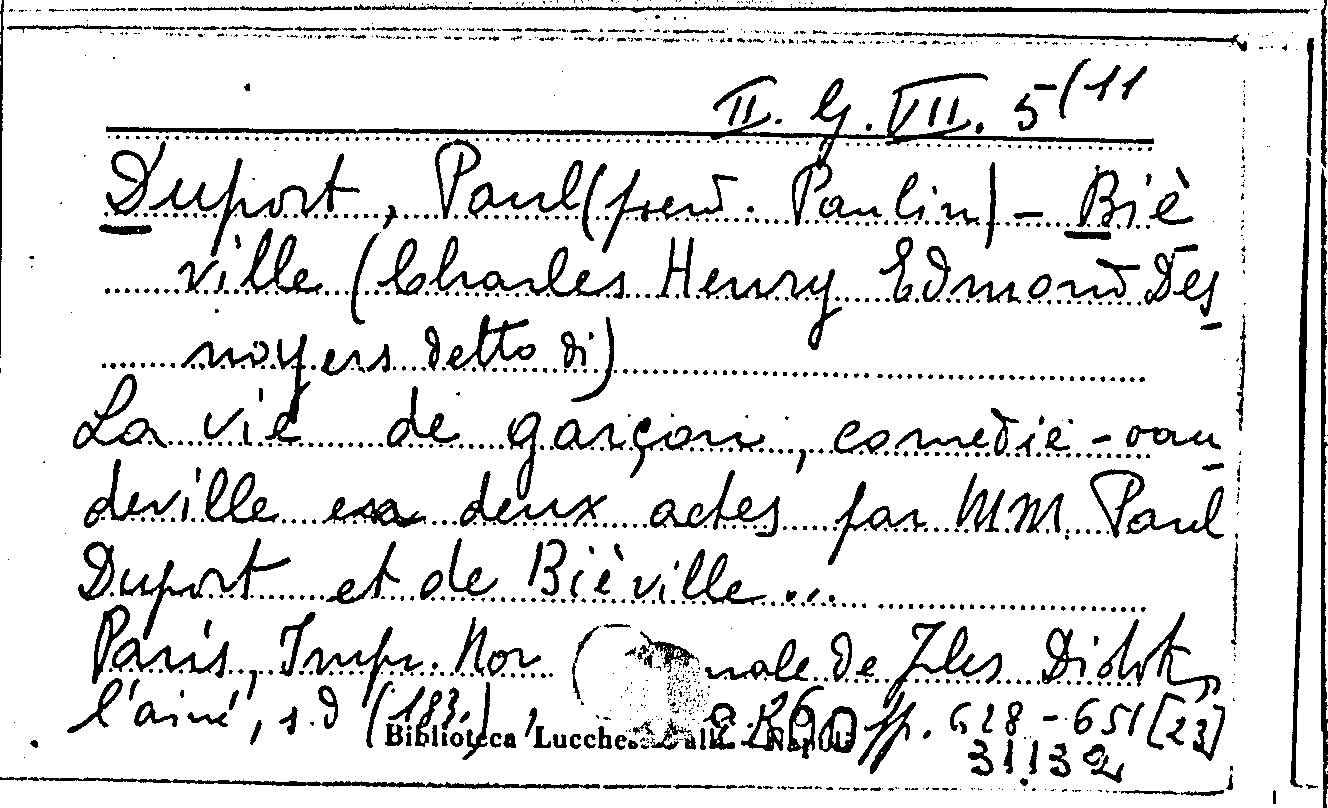 II. G. VII. 5(11
Duport, Paul (pseud. Paulin) - Biè
ville (Charles Henry Edmond Des-
noyers detto di)
La vie de garçon, comedie-vau-
deville en deux actes par MM. Paul
Duport et de Bièville...
Paris, Impr. Nor nale de Jles Didot,
l'ainé, s.d (183.), pp. 628-651 [23]
Biblioteca Lucchesi Palli - Napoli
31132